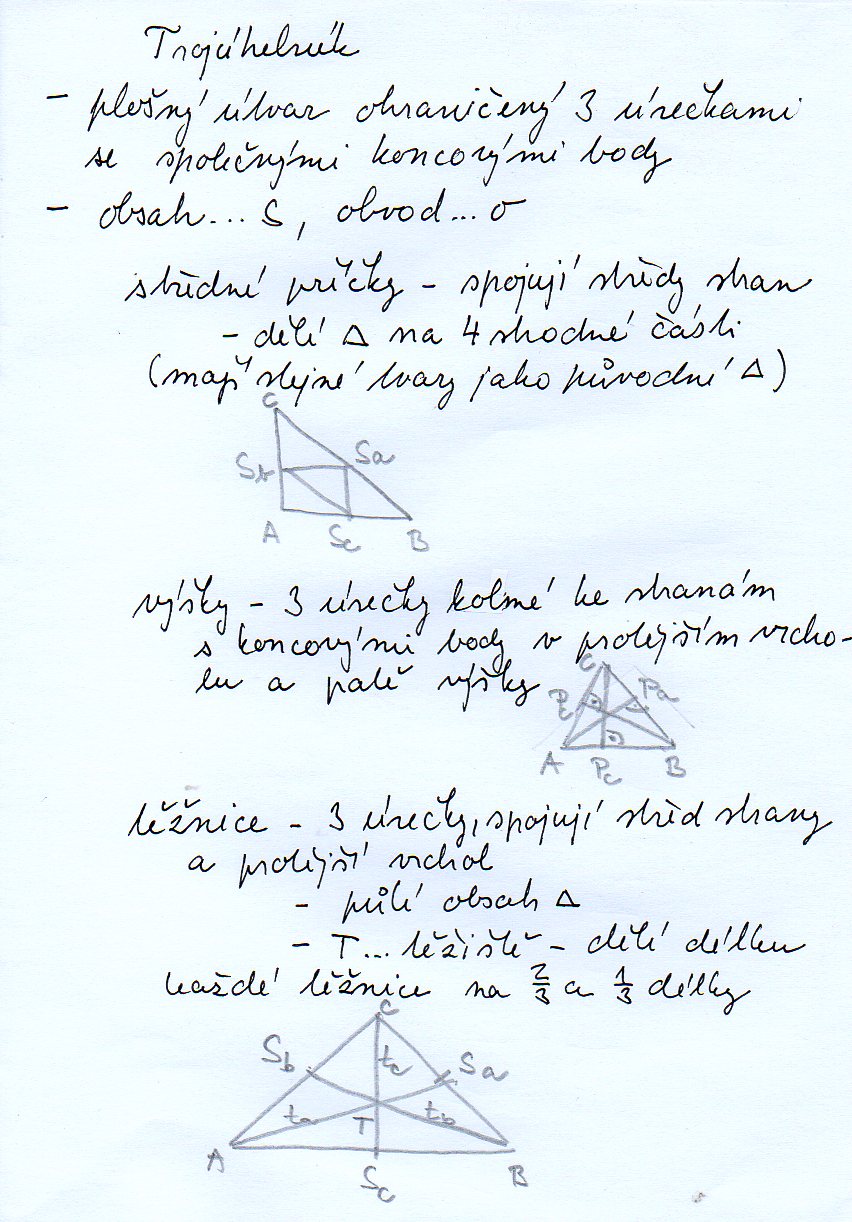 Trojúhelník
- plošný útvar ohraničený 3 úsečkami
se společnými koncovými body
- obsah... S, obvod... o
střední příčky - spojují středy stran
- dělí △ na 4 shodné části
(mají stejné tvary jako původní △)
C
Sb Sa
A Sc B
výšky - 3 úsečky kolmé ke stranám
s koncovými body v protějším vrcho-
lu a patě výšky
C
Pb Pa
A Pc B
těžnice - 3 úsečky, spojují střed strany
a protější vrchol
- půlí obsah △
- T... těžiště - dělí délku
každé těžnice na 2/3 a 1/3 délky
C
Sb tc Sa
ta T tb
A Sc B